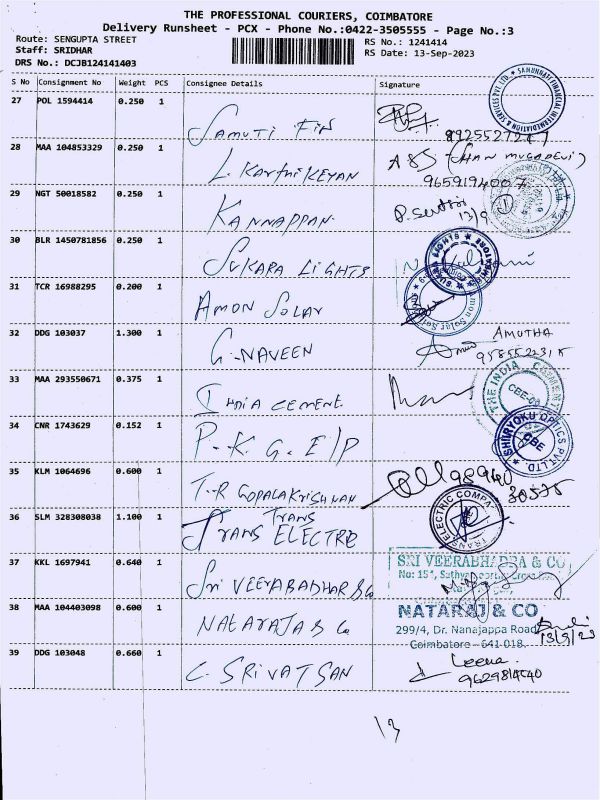 THE PROFESSIONAL COURIERS, COIMBATORE
Delivery Runsheet - PCX - Phone No.:0422-3505555 - Page No.:3
Route: SENGUPTA STREET
Staff: SRIDHAR
DRS No.: DCJB124141403
RS No.: 1241414
RS Date: 13-Sep-2023
S No Consignment No Weight PCS Consignee Details Signature
27 POL 1594414 0.250 1 SAMUTI FIN
28 MAA 104853329 0.250 1 L. KARTHIKEYAN
9659194007
29 NGT 50018582 0.250 1 KANNAPPAN
13/9
30 BLR 1450781856 0.250 1 SUKARA LIGHTS
31 TCR 16988295 0.200 1 AMON SOLAR
32 DDG 103037 1.300 1 G. NAVEEN AMUTHA
33 MAA 293550671 0.375 1 INDIA CEMENT
THE INDIA CEMENT
34 CNR 1743629 0.152 1 P.K.G. E/P
SHURYOKU OPTICS PVT.LTD.
CBE
35 KLM 1064696 0.600 1 T.R GOPALAKRISHNAN
30575
36 SLM 328308038 1.100 1 TRANS
TRANS ELECTRE
TRANS ELECTRIC COMPA
37 KKL 1697941 0.640 1 Sri VEERABADHAR & Co
SRI VEERABHADRA & CO
38 MAA 104403098 0.600 1 NATARAJA & Co
NATARAJ & CO
299/4, Dr. Nanajappa Road
Coimbatore - 641 018.
13/9/23
39 DDG 103048 0.660 1 C. SRIVATSAN Leena
9629814040
13